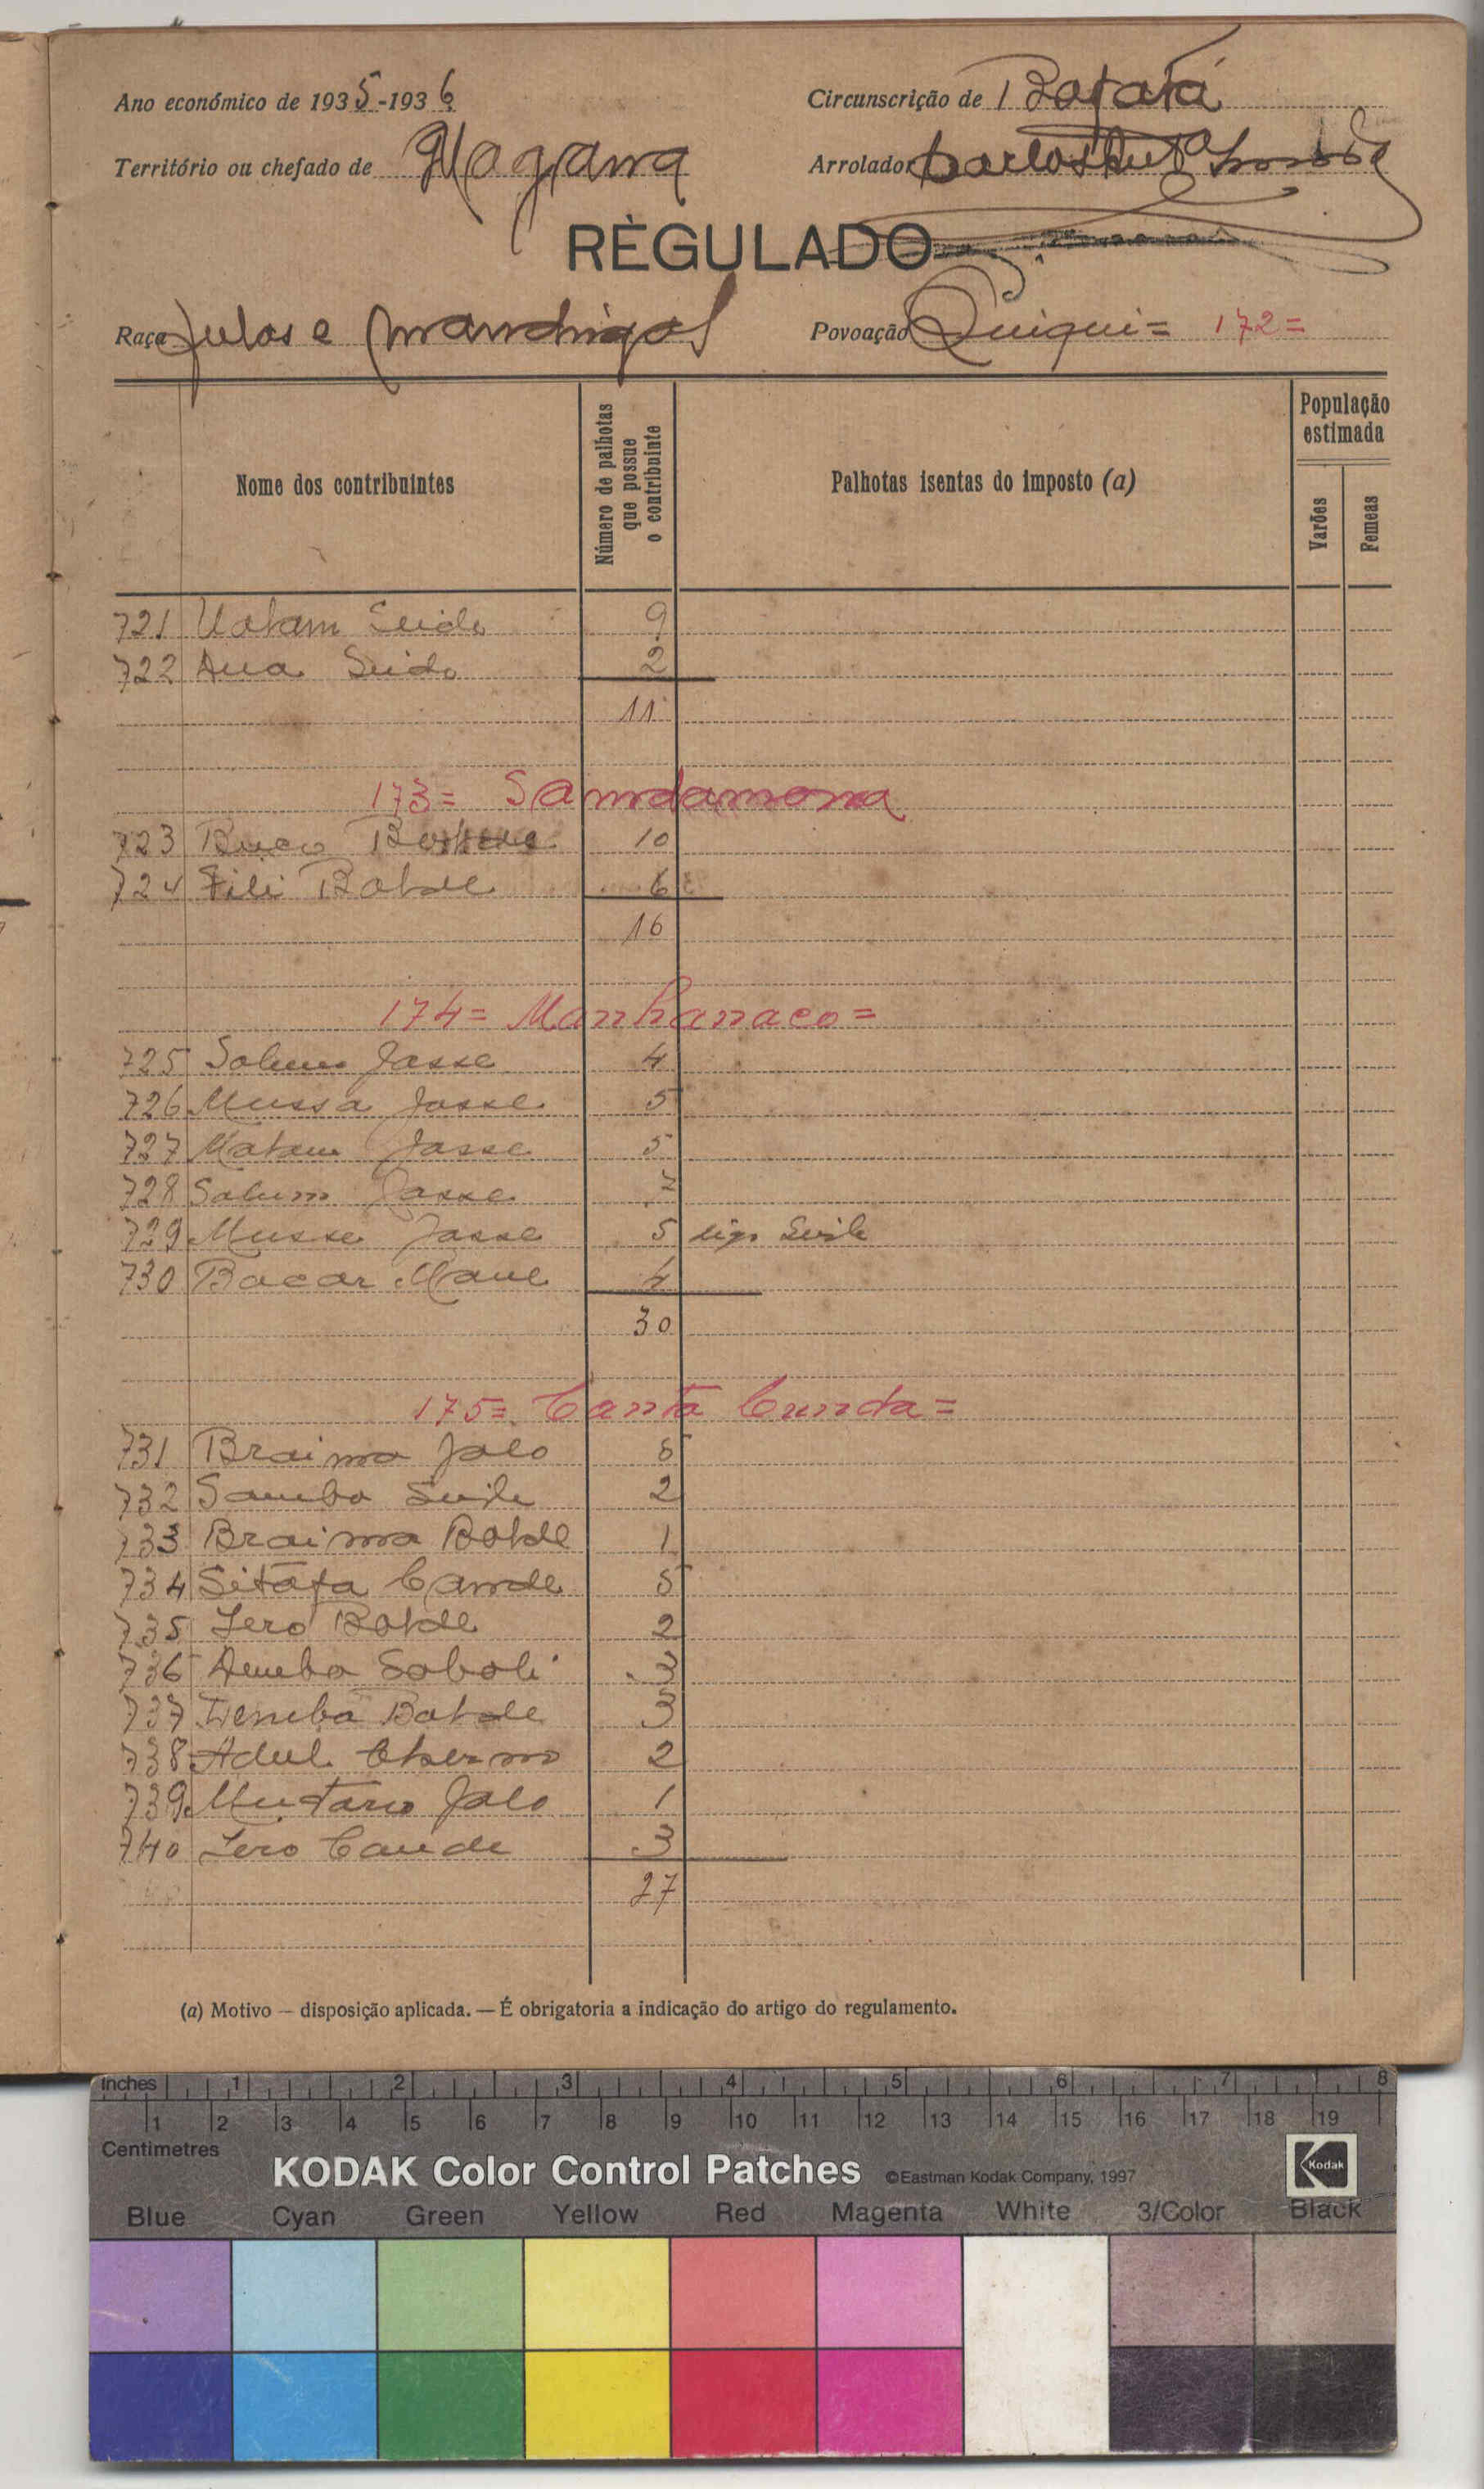 Ano económico de 1935-1936
Circunscrição de Bafatá
Território ou chefado de
Arrolador Carlos
RÈGULADO
Raça Fulas e Mandingas
Povoação Quiqui = 172 =
Nome dos contribuintes
Número de palhotas que possue o contribuinte
Palhotas isentas do imposto (a)
População estimada
Varões
Femeas
721 Seide 9
722 Aua Seide 2
11
173 = Samdamona
723 10
724 Fili Balde 6
16
174 = Manhanaco =
725 Jasse 4
726 Mussa Jasse 5
727 Jasse 5
728 Jasse 7
729 Musse Jasse 5
730 Bacar Mane 4
30
175 = Canta Cunda =
731 Braima Jalo 5
732 Samba 2
733 Braima Balde 1
734 Sitafa Camde 5
735 Balde 2
736 3
737 Demba Balde 3
738 Adul 2
739 Mutaro Jalo 1
740 Cande 3
27
(a) Motivo — disposição aplicada. — É obrigatoria a indicação do artigo do regulamento.
Inches 1 2 3 4 5 6 7 8
1 2 3 4 5 6 7 8 9 10 11 12 13 14 15 16 17 18 19
Centimetres
KODAK Color Control Patches ©Eastman Kodak Company, 1997 Kodak
Blue Cyan Green Yellow Red Magenta White 3/Color Black